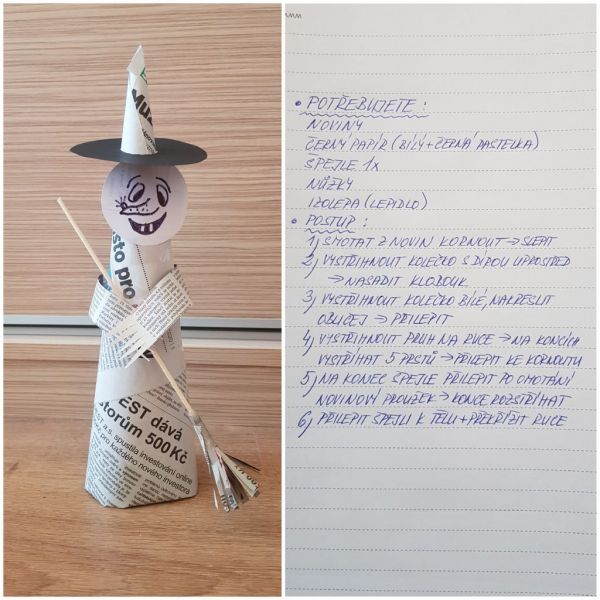 • POTŘEBUJETE :
NOVINY
ČERNÝ PAPÍR (BÍLÝ + ČERNÁ PASTELKA)
ŠPEJLE 1x
NŮŽKY
IZOLEPA (LEPIDLO)
• POSTUP :
1) SMOTAT Z NOVIN KORNOUT → SLEPIT
2) VYSTŘIHNOUT KOLEČKO S DÍROU UPROSTŘED
→ NASADIT KLOBOUK
3) VYSTŘIHNOUT KOLEČKO BÍLÉ, NAKRESLIT
OBLIČEJ → PŘILEPIT
4) VYSTŘIHNOUT PRUH NA RUCE → NA KONCÍCH
VYSTŘÍHAT 5 PRSTŮ → PŘILEPIT KE KORNOUTU
5) NA KONEC ŠPEJLE PŘILEPIT PO OMOTÁNÍ
NOVINOVÝ PROUŽEK → KONCE ROZSTŘÍHAT
6) PŘILEPIT ŠPEJLI K TĚLU + PŘEKŘÍŽIT RUCE
sto pro
EST dává
torům 500 Kč
ST a.s. spustila investování online
pro každého nového investora
www